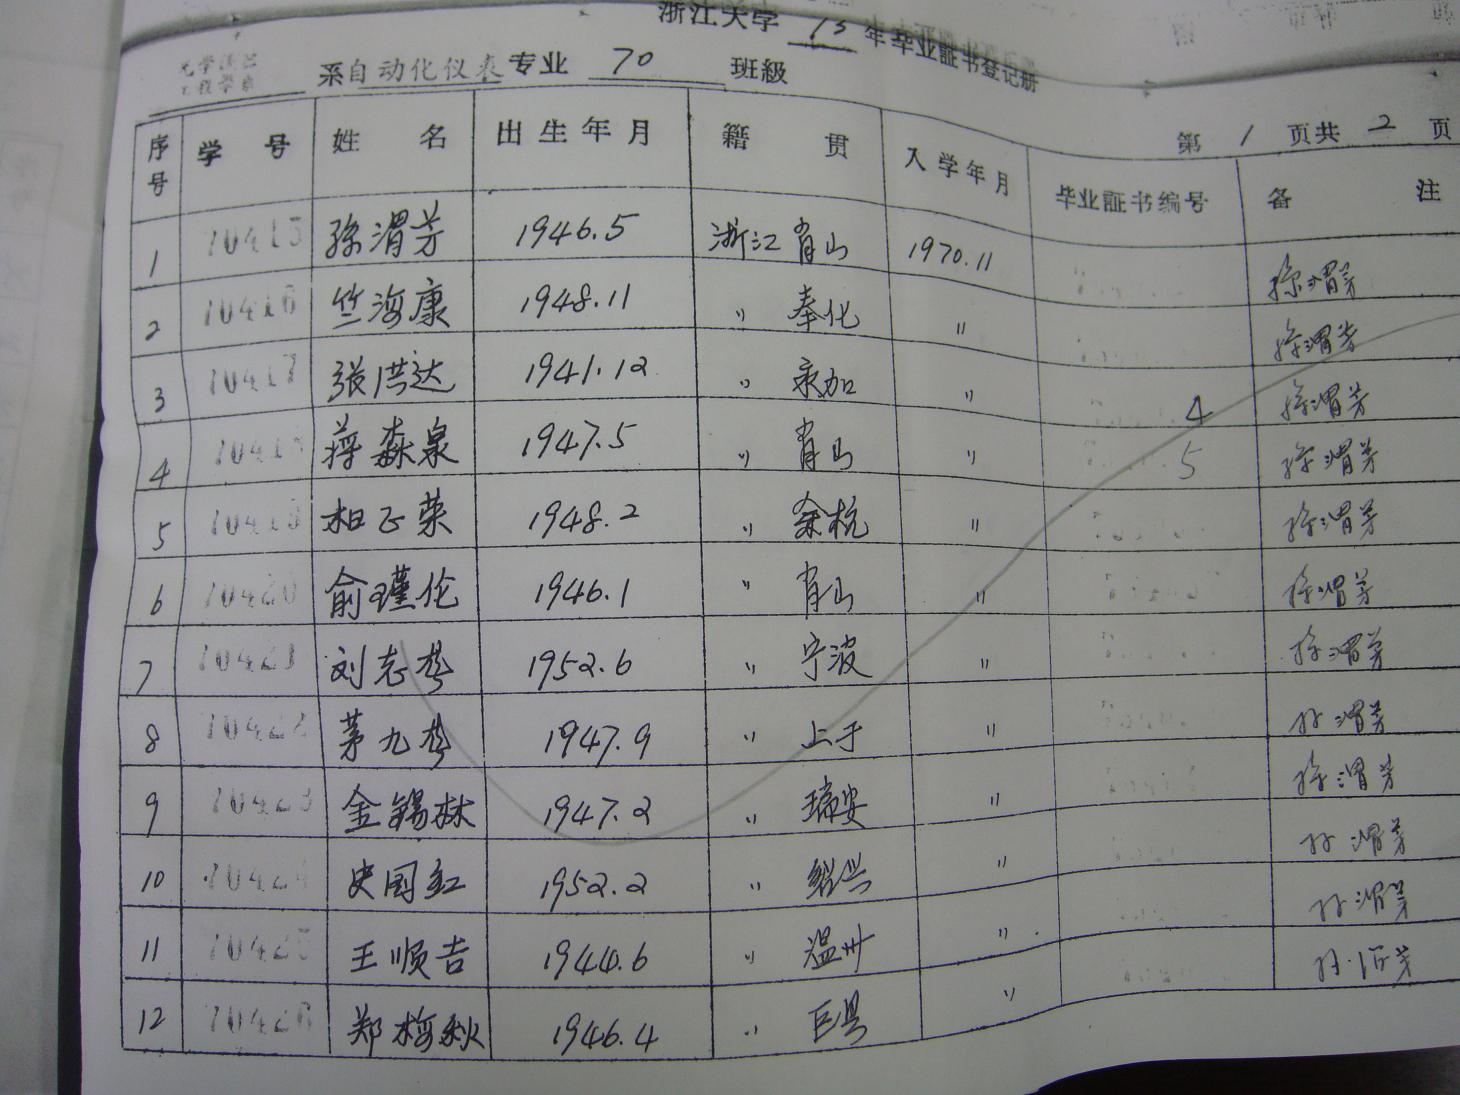 浙江大学 73 年毕业証书登记册
光学仪器
工程学系 系 自动化仪表 专业 70 班級
第 1 页共 2 页
序号 学号 姓名 出生年月 籍贯 入学年月 毕业証书编号 备注
1 70415 孫渭芳 1946.5 浙江 肖山 1970.11 孫渭芳
2 70416 竺海康 1948.11 〃 奉化 〃 孫渭芳
3 70417 張洪达 1941.12 〃 永加 〃 4 孫渭芳
4 70418 蒋森泉 1947.5 〃 肖山 〃 5 孫渭芳
5 70419 相正荣 1948.2 〃 余杭 〃 孫渭芳
6 70420 俞瑾伦 1946.1 〃 肖山 〃 孫渭芳
7 70421 刘志 1952.6 〃 宁波 〃 孫渭芳
8 70422 茅九 1947.9 〃 上于 〃 孙渭芳
9 70423 金锡林 1947.2 〃 瑞安 〃 孫渭芳
10 70424 史国 1952.2 〃 绍兴 〃 孙渭芳
11 70425 王顺吉 1944.6 〃 温州 〃 孙渭芳
12 70426 郑梅秋 1946.4 〃 巨县 〃 孙渭芳